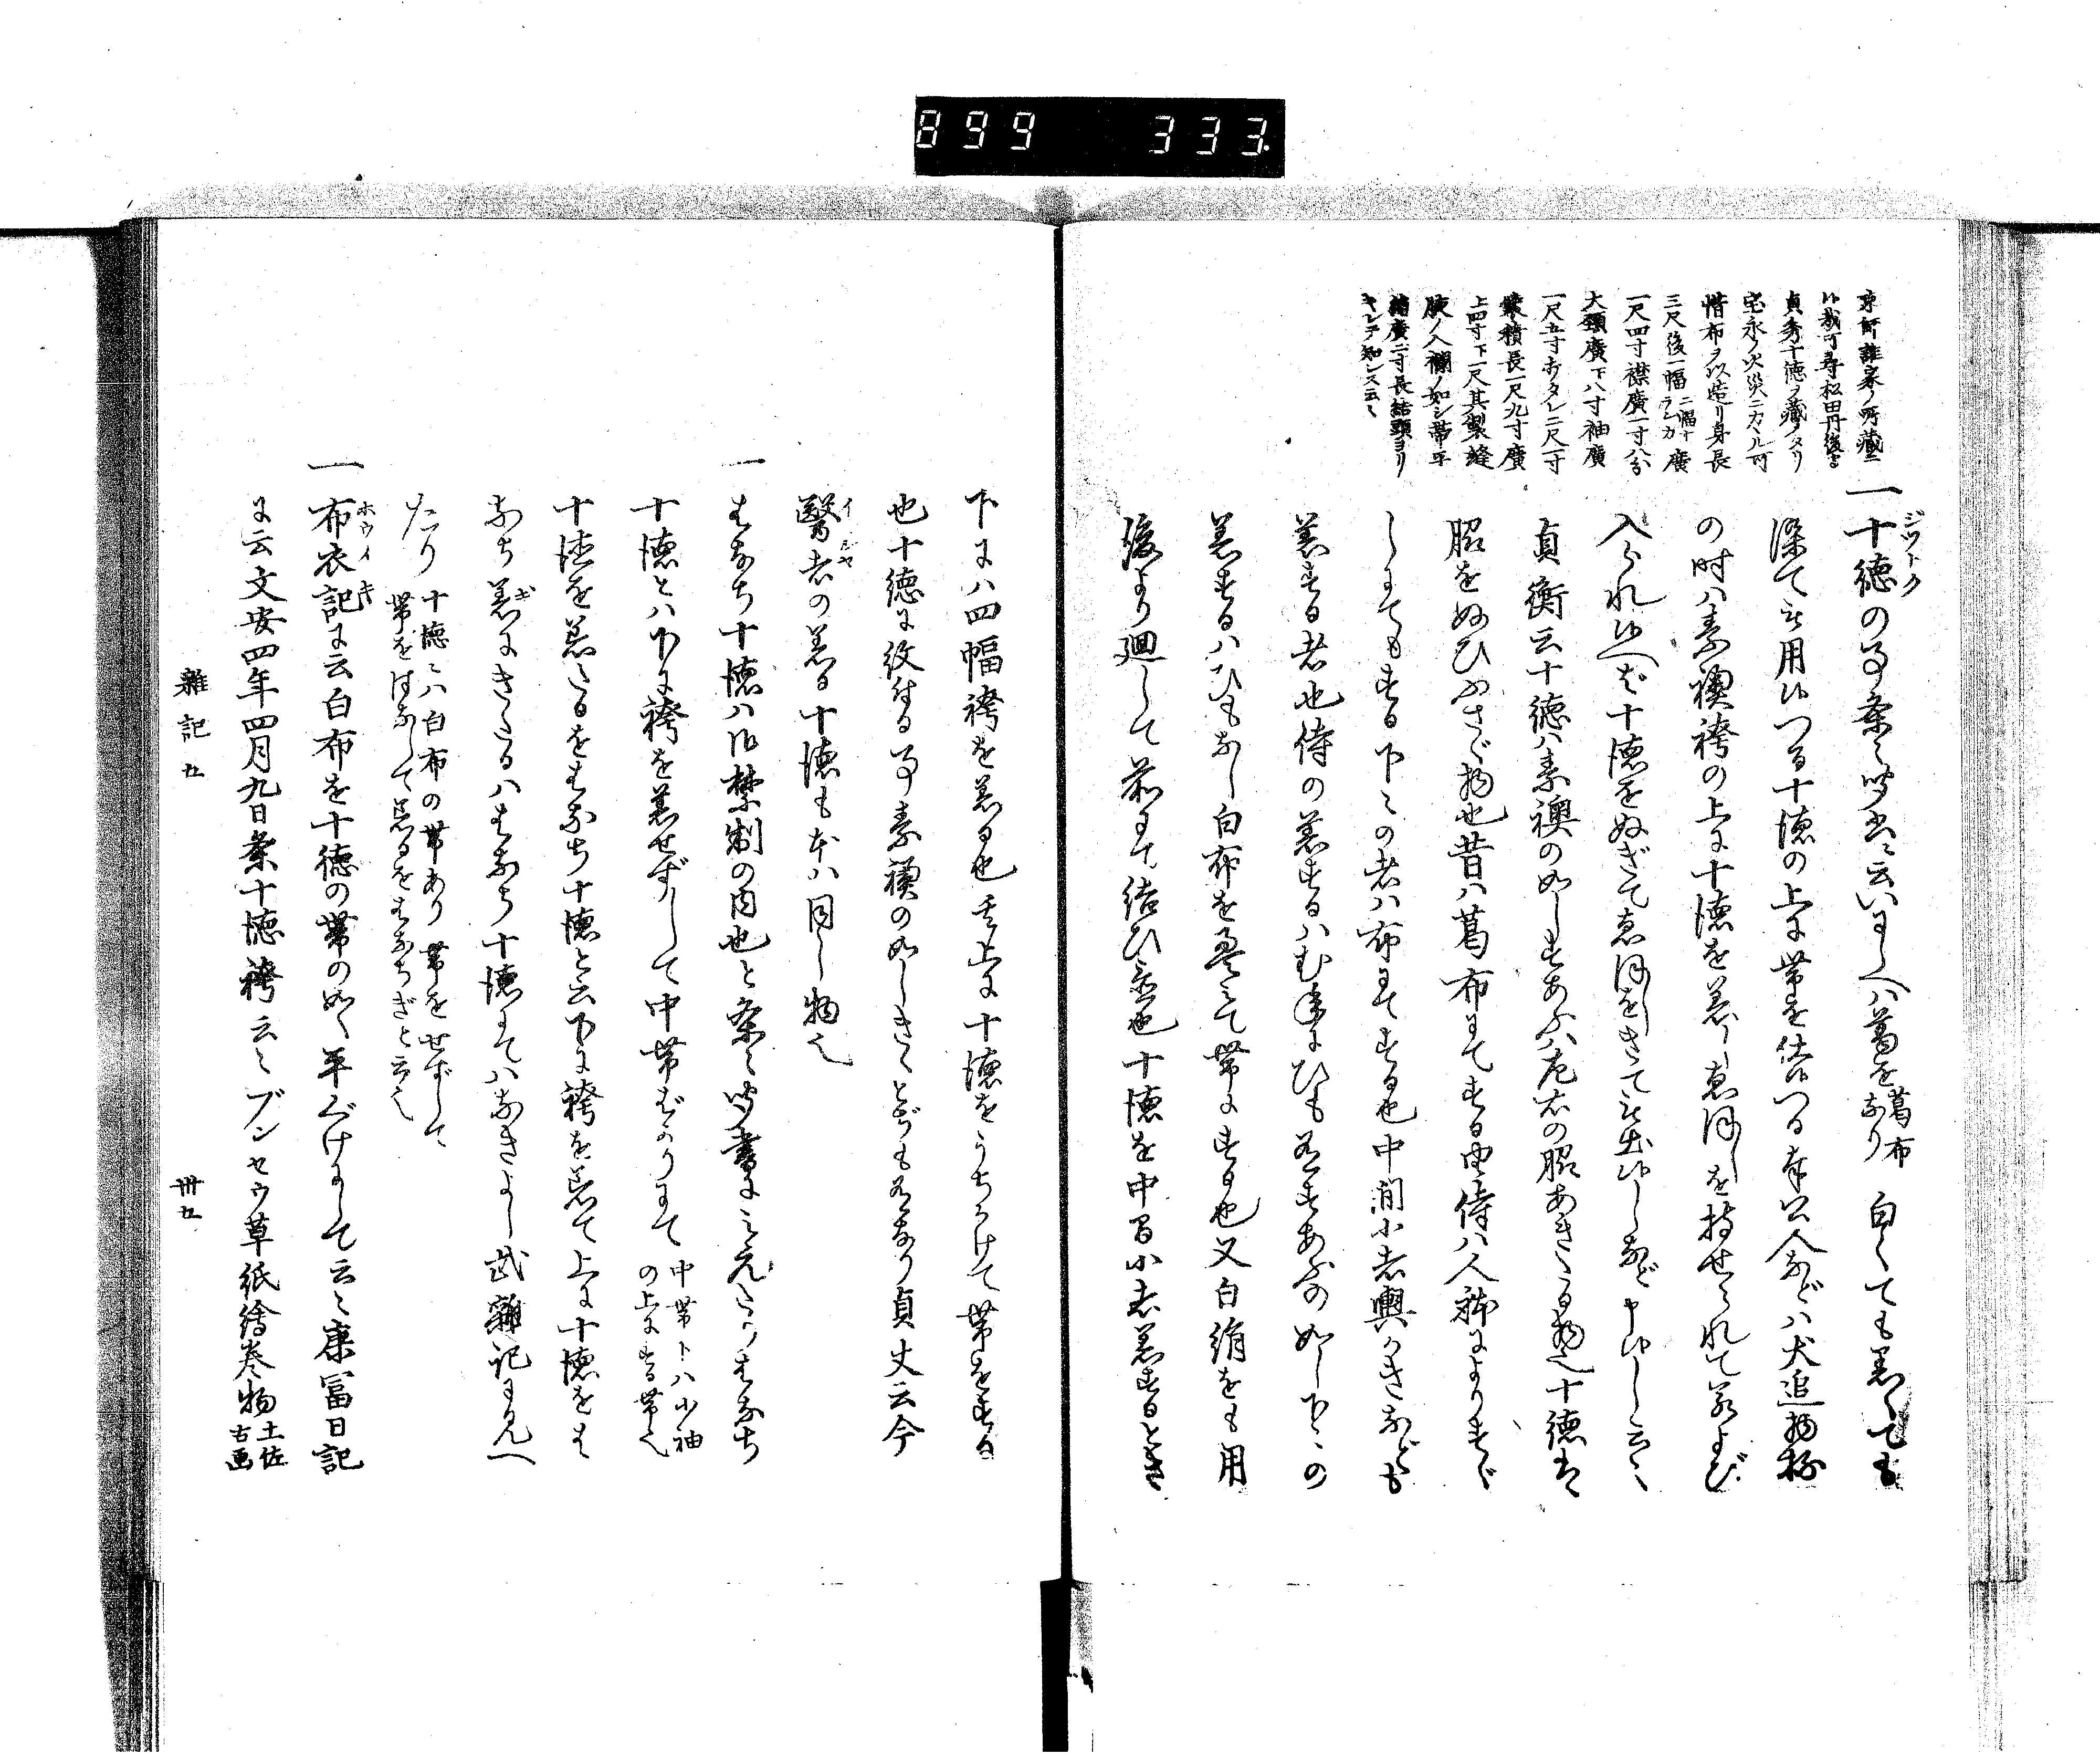 899 333
京師誰家ノ所藏ニ
ハ哉可尋松田丹後守
貞秀十徳ヲ藏メタリ
宝永ノ火災ニカヽル可
惜布ヲ以造リ身長
三尺後一幅二幅ナランカ廣
一尺四寸襟廣一寸八分
大頸廣下八寸袖廣
一尺五寸タレ二尺一寸
襞積長一尺九寸廣
上四寸下一尺其製縫
腋ノ入襴ノ如シ帯平
絎廣二寸長結頸ヨリ
キレテ知レス云々
一十徳の事条々聞書ニ云いにしへハ葛を葛布なり白くても黒くても
ジツトク
染て被用候つる十徳の上に帯を仕候つる奉公人などハ犬追物杯
の時ハ素襖袴の上に十徳を着しゑぼしを持せられて若よび
入られ候へば十徳をぬぎてゑぼしをきて被出候しなど申候し云々
貞衡云十徳ハ素襖の如しすあふハ左右の脇あきたる物也十徳は
脇をぬひふさぐ物也昔ハ葛布にてする侍ハ人躰によりすゞ
しにてもする下々の者ハ布にてする也中間小者輿かきなども
着する者也侍の着するハむねにひも有すあふの如し下々の
着するハひもなし白布をたゝみて帯にする也又白絹をも用
後より廻して前にて結び也十徳を中間小者着するとき
下にハ四幅袴を着る也其上に十徳をうちかけて帯をする
也十徳に紋付る事素襖の如しきくとぢも有なり貞丈云今
醫者の着る十徳も本ハ同し物也
イシヤ
一はなち十徳ハ御禁制の内也と条々聞書にみえたりはなち
十徳とハ下に袴を着せずして中帯ばかりにて中帯トハ小袖の上にする帯也
十徳を着たるをはなち十徳と云下に袴を着て上に十徳をは
なち着にきたるハはなち十徳にてハなきよし武雜記に見へ
ギ
たり十徳ニハ白布の帯あり帯をせずして帯をはなして着るをはなちぎと云也
一布衣記に云白布を十徳の帯の如く平ぐけにして云々康冨日記
ホウイキ
に云文安四年四月九日条十徳袴云々ブンセウ草紙繪巻物土佐古画
雜記五
卅五